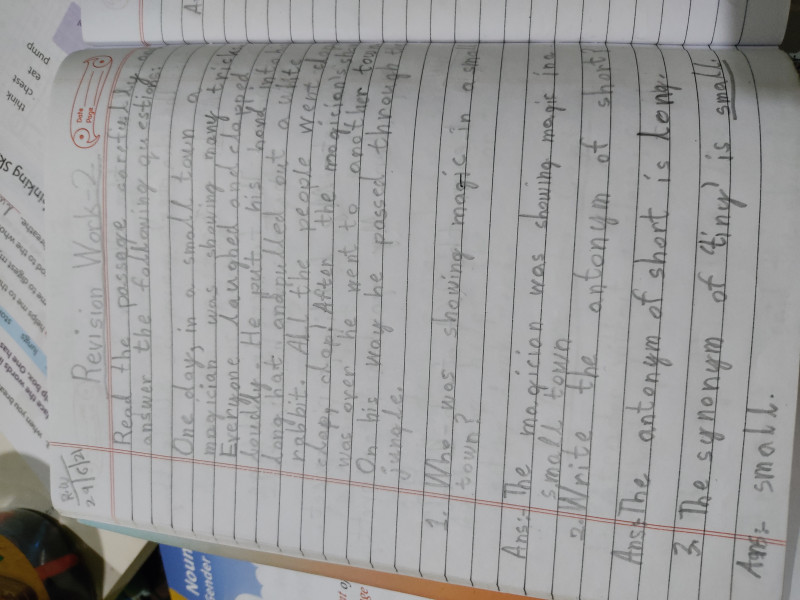 R.W
Date
Page
Revision Work-2
Read the passage carefully
answer the following questions:
One day, in a small town a
magician was showing many trick
Everyone laughed and clapped
loudly. He put his hand into
long hat and pulled out a white
rabbit. All the people went clap
clapy clap! After the magician's
was over he went to another town
On his way he passed through
jungle.
1. Who was showing magic in a small
town?
Ans:- The magicion was showing magic in a
small town
2. Write the antonym of short
Ans:- The antonym of short is long.
3. The synonym of 'tiny' is small.
Ans:- small.
think
chest
eat
pump
Noun